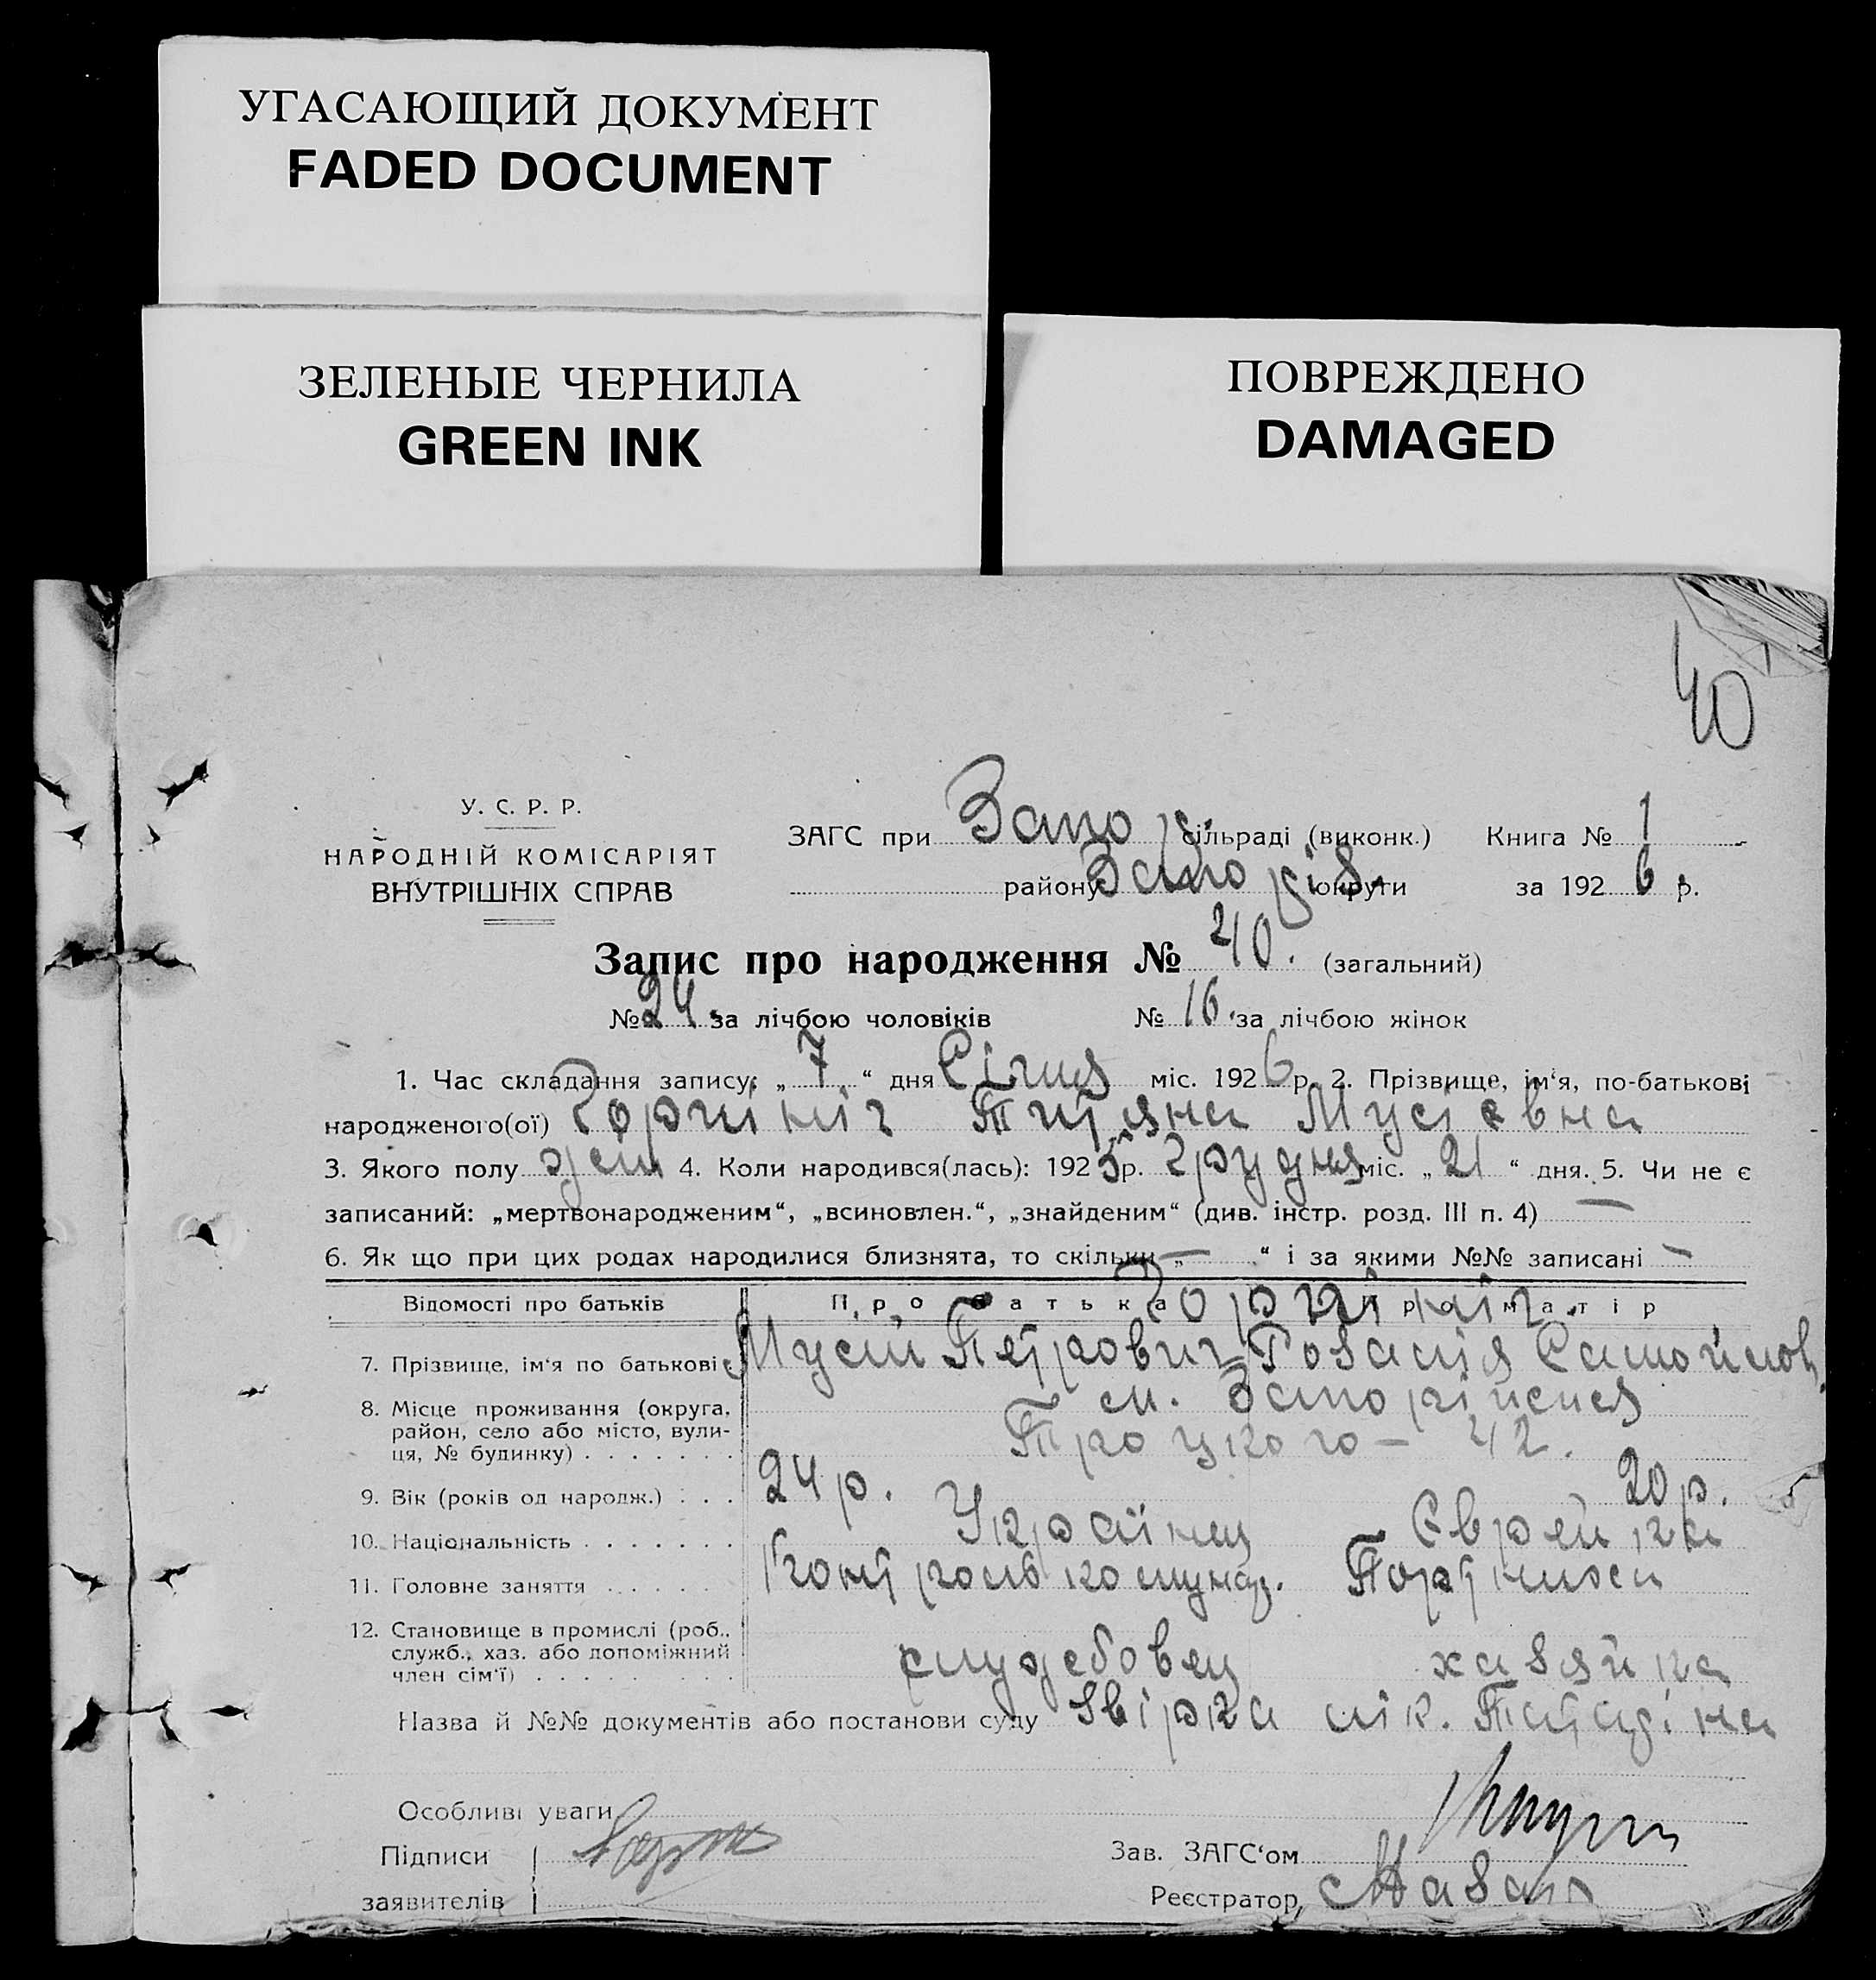 УГАСАЮЩИЙ ДОКУМЕНТ
FADED DOCUMENT
ЗЕЛЕНЫЕ ЧЕРНИЛА
GREEN INK
ПОВРЕЖДЕНО
DAMAGED
40
У. С. Р. Р.
НАРОДНІЙ КОМІСАРІЯТ
ВНУТРІШНІХ СПРАВ
ЗАГС при Запоріз. сільраді (виконк.) Книга № 1
району Запоріз. округи за 1926 р.
Запис про народження № 40. (загальний)
№ 24. за лічбою чоловіків № 16. за лічбою жінок
1. Час складання запису: „ 7 “ дня Січня міс. 1926 р. 2. Прізвище, ім'я, по-батькові
народженого(ої) Тетяна Мусієвна
3. Якого полу жін 4. Коли народився(лась): 1925 р. Грудня міс. „ 21 “ дня. 5. Чи не є
записаний: „мертвонародженим“, „всиновлен.“, „знайденим“ (див. інстр. розд. III п. 4) —
6. Як що при цих родах народилися близнята, то скільки „ — “ і за якими №№ записані —
Відомості про батьків Про батька Про матір
7. Прізвище, ім'я по батькові Мусій Петрович Розалія Самойлов.
8. Місце проживання (округа, район, село або місто, вули-
ця, № будинку) м. Запоріжжя
Троцкого — 42.
9. Вік (років од народж.) 24 р. 20 р.
10. Національність Українец Єврейка
11. Головне заняття Контроль Портниха
12. Становище в промислі (роб., служб., хаз. або допоміжний
член сім'ї) служебовец хазяйка
Назва й №№ документів або постанови суду Звірка лік.
Особливі уваги
Підписи
заявителів
Зав. ЗАГС'ом
Реєстратор